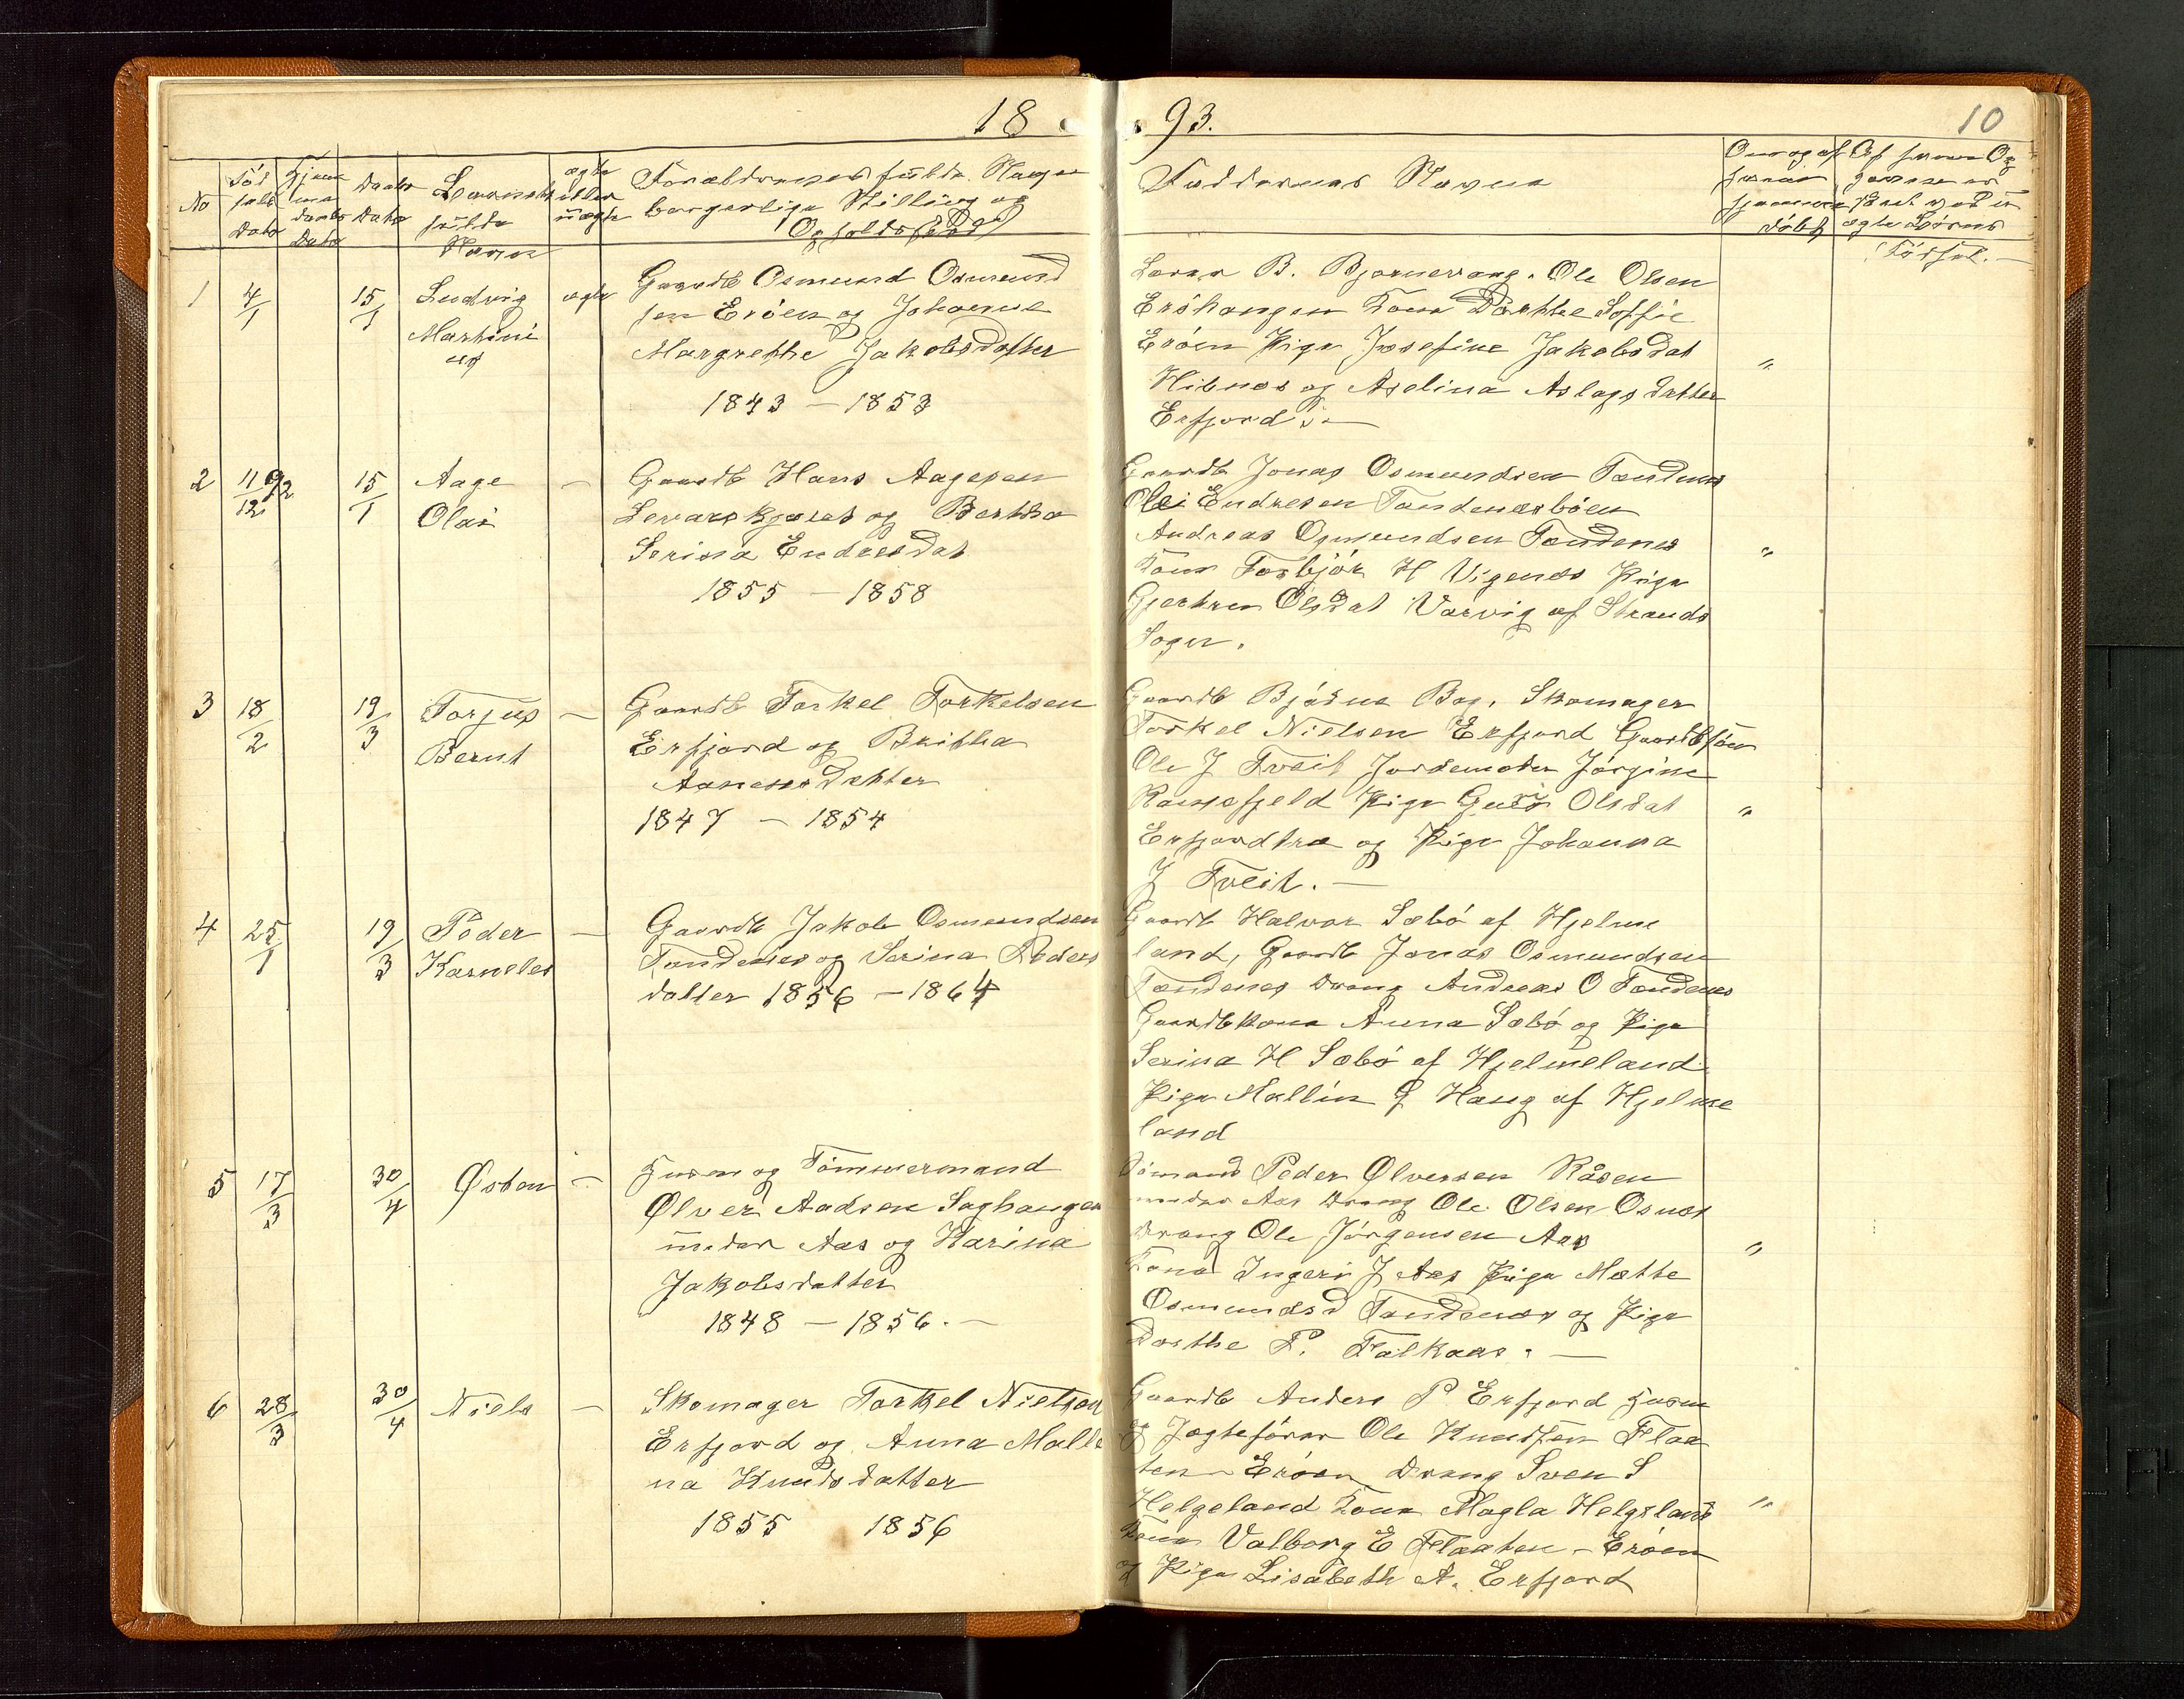 18
93.
10
No
Föd
sels
Dato
Hjem
me
daabs
Dato
Daabs
Dato
Barnets
fulde
Navn
ægte
eller
uægte
Forældrenes fulde Navn
borgerlige Stilling og
Opholdssted
Faddernes Navne
Om og af
hvem
hjemme
döbt
ægte Börns
Födsel.
1
4/1
15/1
Ludvig
Martini
us
ægte
Gaardb Osmund Osmund
sen Eröen og Johanne
Margrethe Jakobsdatter
1843 – 1853
Lærer B. Bjørnevaag. Ole Olsen
Kone Dorthe Soffie
Eröen Pige Josefine Jakobsdat
Hibnes og Aselina Aslagsdatter
Erfjord
"
2
11/12 92
15/1
Aage
Olai
–
Gaardb Hans Aagesen
Levarskjæret og Bertha
Serina Endresdat
1855 – 1858
Gaardb Jonas Osmundsen Tendenes
Ole Endresen Tendenesböen
Andreas Osmundsen Tendenes
Kone Torbjör H Vigenes Pige
Gjertren Olsdat Varvig af Strands
Sogn.
"
3
18/2
19/3
Torjus
Bernt
–
Gaardb Torkel Torkelsen
Erfjord og Britha
Aanensdatter
1847 – 1854
Gaardb Bjarne Bog. Skomager
Torkel Nielsen Erfjord Gaardbsön
Ole J Tveit Jordemoder Jörgine
Ramsfjeld Pige Guro Olsdat
Erfjord og Pige Johanna
J Tveit. –
"
4
25/1
19/3
Peder
Karneles
–
Gaardb Jakob Osmundsen
Tendenes og Serina Peders
datter 1856 – 1864
Gaardb Halvor Sæbö af Hjelme
land, Gaardb Jonas Osmundsen
Tendenes Dreng Andreas O Tendenes
Gaardbkone Anna Sæbö og Pige
Serina H Sæbö af Hjelmeland
Pige Mallin G Haug af Hjelme
land
5
17/3
30/4
Østen
–
Husm og Tömmermand
Ølver Aadsen Saghaugen
under Aas og Karina
Jakobsdatter
1848 – 1856. –
Sömand Peder Ølversen Råsen
under Aas Dreng Ole Olsen Osnes
Dreng Ole Jörgensen Aas
Kone Ingeri J Aas Pige Mette
Osmundsd Tendenes og Pige
Dorthe P. Falkaas. –
"
6
28/3
30/4
Niels
–
Skomager Torkel Nielsen
Erfjord og Anna Malle
na Knudsdatter
1855 1856
Gaardb Anders P Erfjord Husm
og Jægtefører Ole Knudsen Flaa
ten – Eröen Dreng Sven S
Helgeland Kone Magla Helgeland
Kone Valborg E Flaaten – Eröen
og Pige Lisabeth A. Erfjord
"